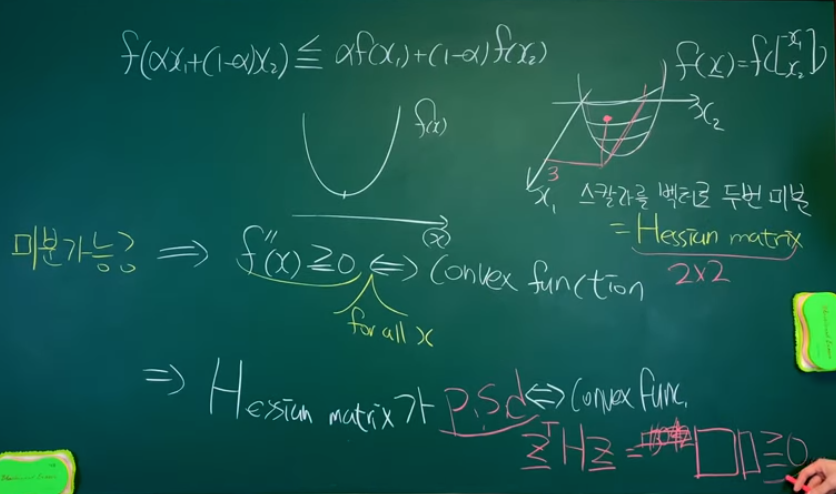 f(αx₁+(1-α)x₂) ≤ αf(x₁)+(1-α)f(x₂)
f(x)=f([x₁ x₂])
f(x)
x₂
3
x₁
스칼라를 벡터로 두번 미분
(x)
= Hessian matrix
2x2
미분가능? ⇒ f''(x) ≥ 0 ⇔ Convex function
for all x
⇒ Hessian matrix가 p.s.d ⇔ Convex func.
zᵀHz = ≥0